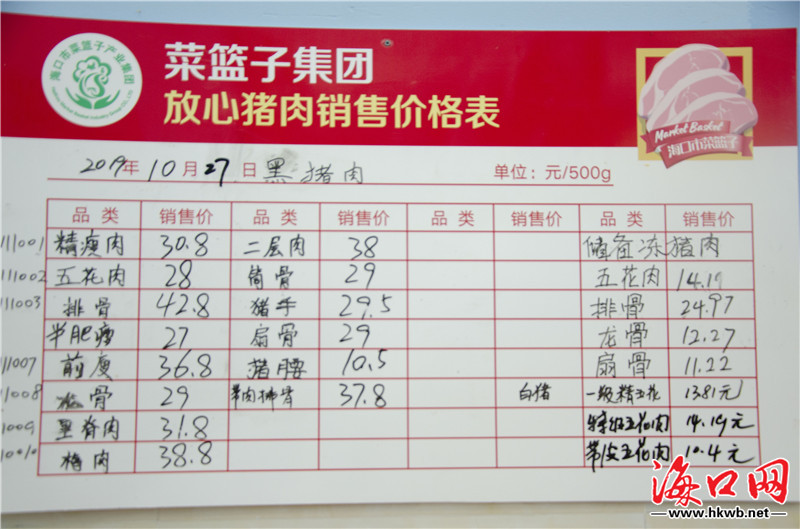 海口市菜篮子产业集团
菜篮子集团
放心猪肉销售价格表
Market Basket
海口市菜篮子
2019年10月27日黑猪肉 单位：元/500g
品类 销售价 品类 销售价 品类 销售价 品类 销售价
111001 精瘦肉 30.8 二层肉 38 储备冻猪肉
111002 五花肉 28 筒骨 29 五花肉 14.19
111003 排骨 42.8 猪手 29.5 排骨 24.97
半肥瘦 27 扇骨 29 龙骨 12.27
11007 前瘦 36.8 猪腰 10.5 扇骨 11.22
11008 骨 29 羊肉排骨 37.8 白猪 一级精五花 13.81元
1009 里脊肉 31.8 特级五花肉 14.19元
10010 梅肉 38.8 带皮五花肉 10.4元
海口网
www.hkwb.net